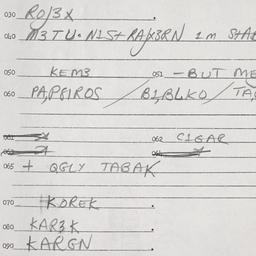 030 RO/3X
040 M3TU. N1S+ RA/X8RN 1 m STA
050 KEM3 051 - BUT ME
060 PA,PEIROS / B1,BLKO / TA,
062 C1GAR
065 + QGLY TABAK
070 KOREK
080 KAR3K
090 KARGN